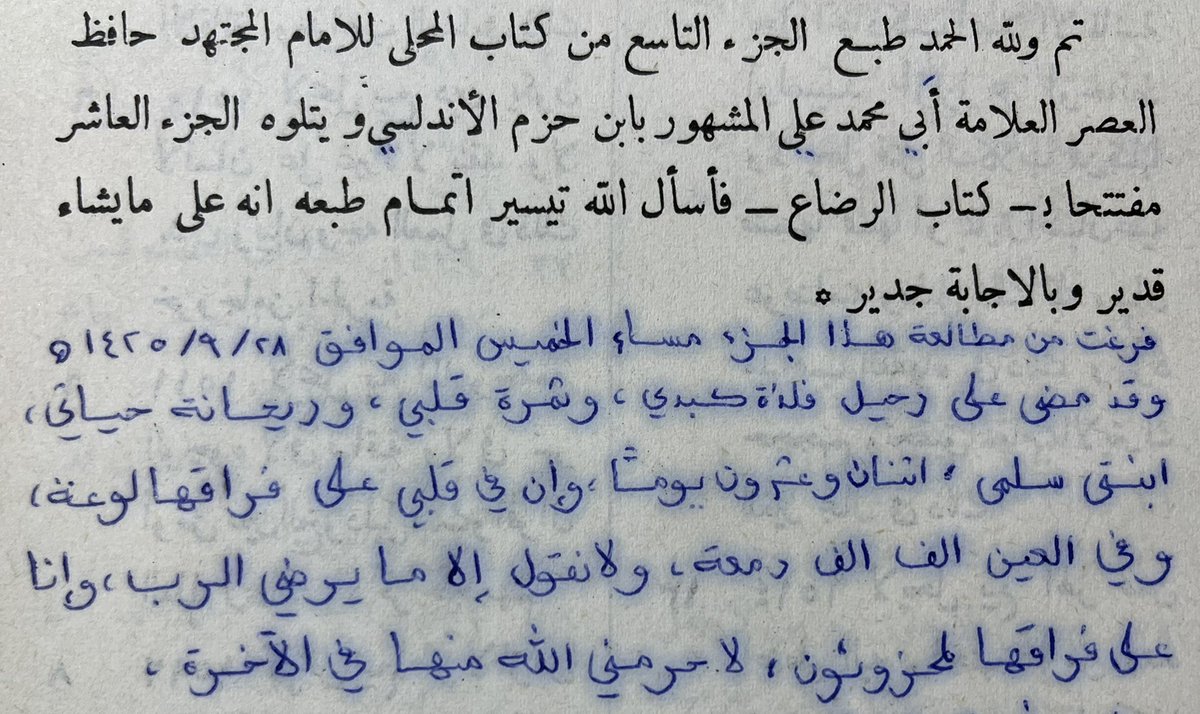 تم ولله الحمد طبع الجزء التاسع من كتاب المحلى للامام المجتهد حافظ
العصر العلامة أبي محمد علي المشهور بابن حزم الأندلسي ويتلوه الجزء العاشر
مفتتحا بـ ـ كتاب الرضاع ـ فأسأل الله تيسير اتمام طبعه انه على مايشاء
قدير وبالاجابة جدير *
فرغت من مطالعة هذا الجزء مساء الخميس الموافق ١٤٢٥/٩/٢٨ه
وقد مضى على رحيل فلذة كبدي، وثمرة قلبي، وريحانة حياتي،
ابنتي سلمى، اثنان وعشرون يومًا، وإن في قلبي على فراقها لوعة،
وفي العين الف الف دمعة، ولا نقول إلا ما يرضي الرب، وإنا
على فراقها لمحزونون، لا حرمني الله منها في الآخرة،